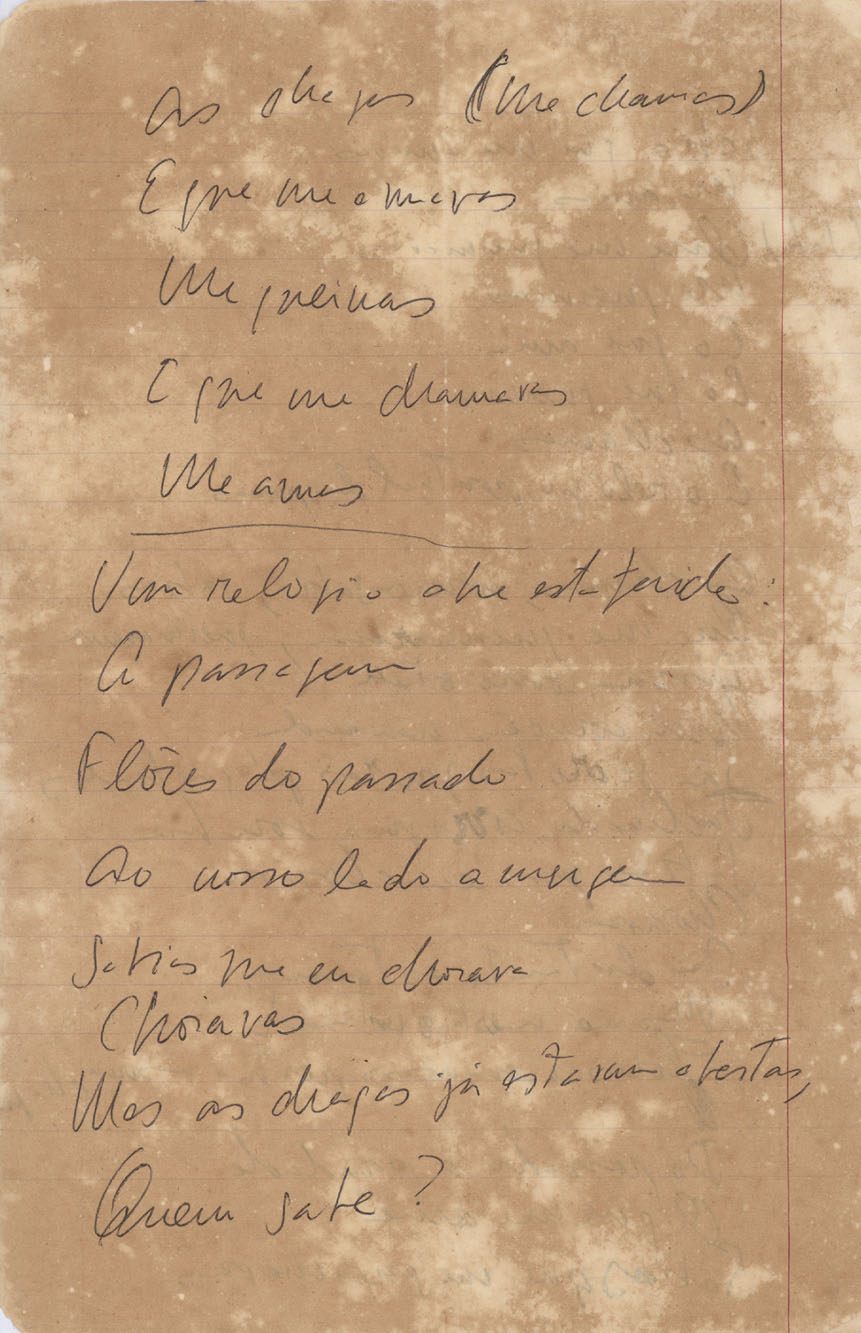 As chagas (Me chamas)
E que me amavas
Me queimas
E que me chamavas
Me amas
Vem relógio abre esta ferida:
A passagem
Flôres do passado
Ao nosso lado a
Sabias que eu chorava
Choravas
Mas as chagas já estavam abertas,
Quem sabe?